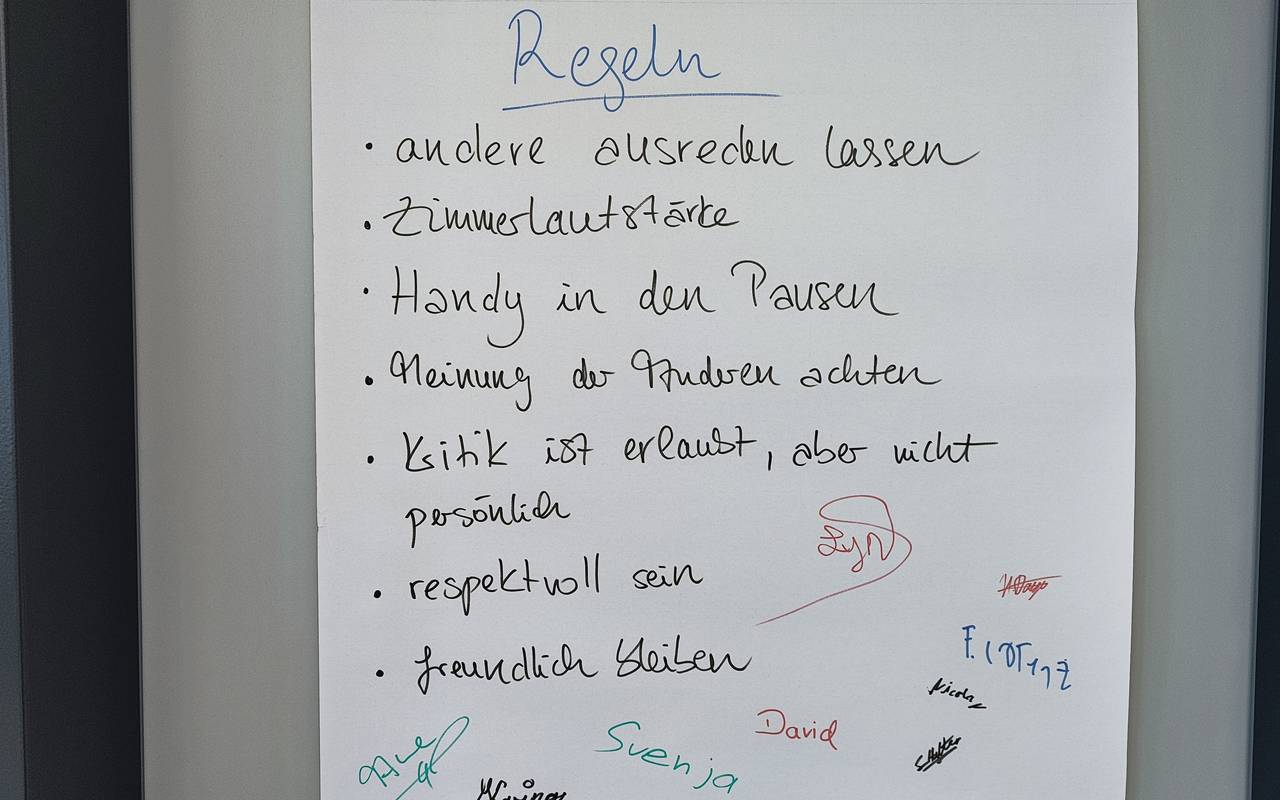 Regeln
· andere ausreden lassen
· Zimmerlautstärke
· Handy in den Pausen
· Meinung der Anderen achten
· Kritik ist erlaubt, aber nicht
persönlich
· respektvoll sein
· freundlich bleiben
Svenja
David